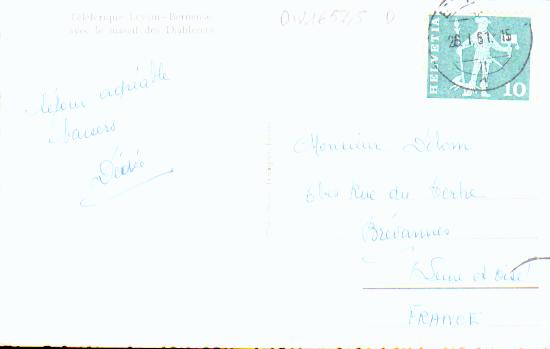 Téléférique Leysin-Berneuse
avec le massif des Diablerets
DW16545 D
HELVETIA
26.1.61.15
10
séjour agréable
Baisers
Désiré
Monsieur Délom
6 bis Rue du Tertre
Brévannes
Seine et Oise
FRANCE